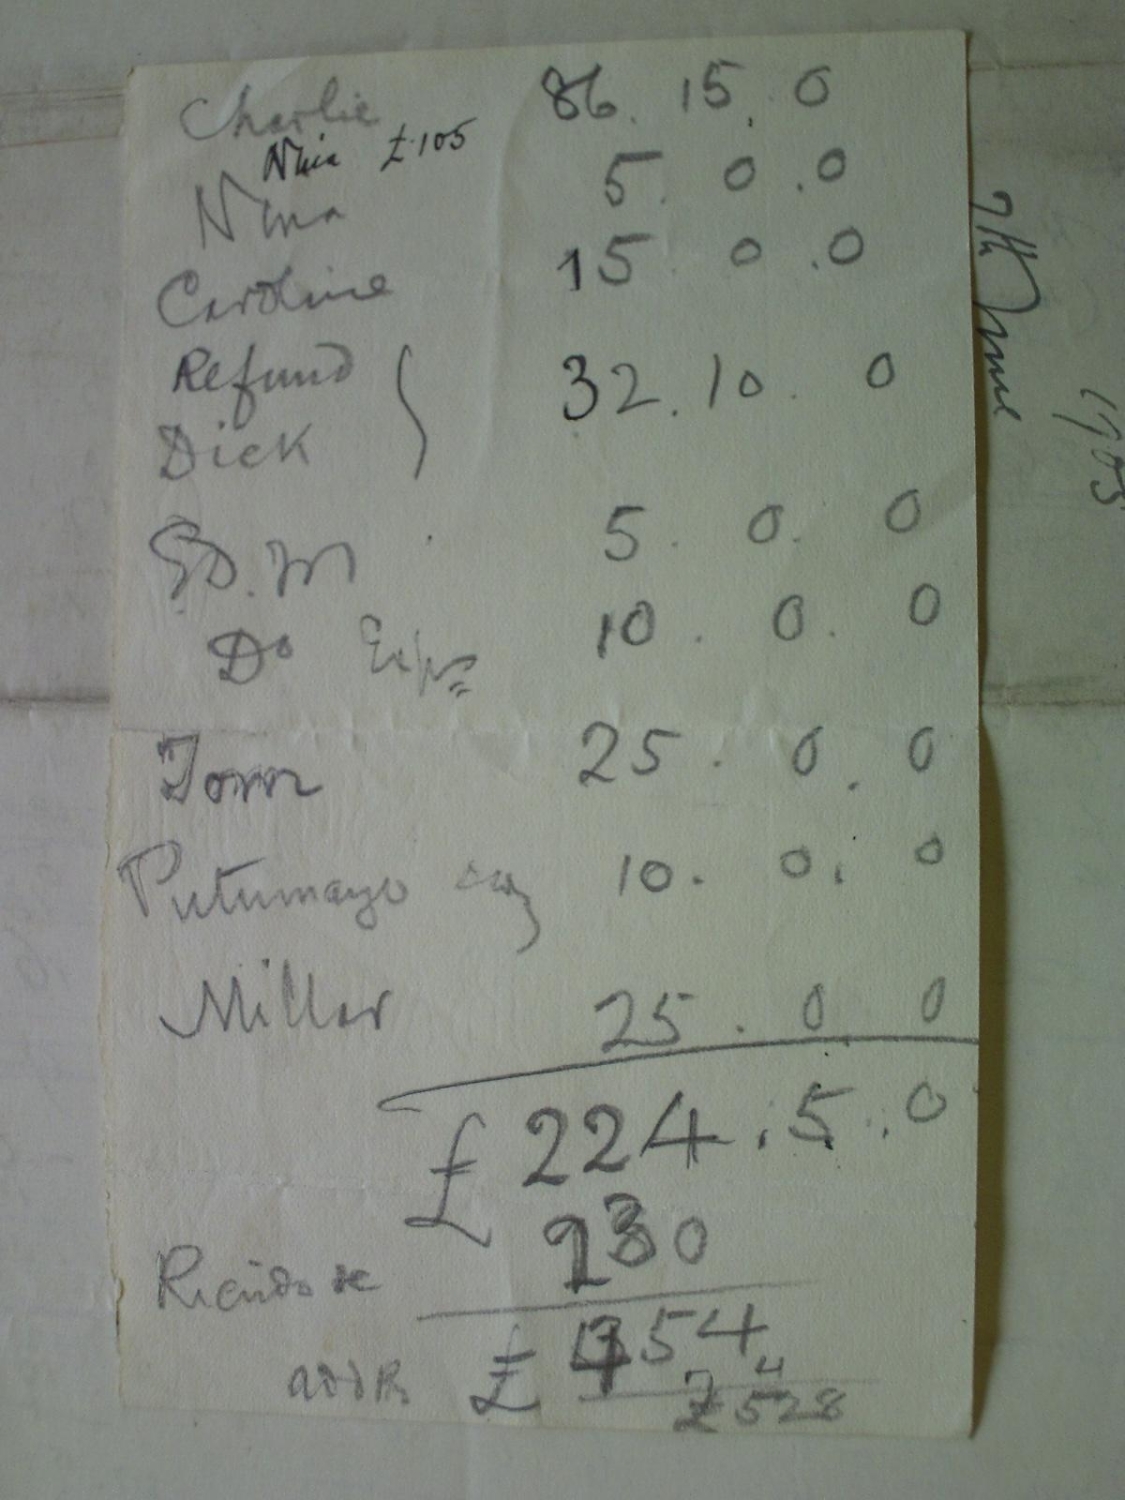 Charlie 86. 15. 0
Nina £.105
Nina 5. 0. 0
Caroline 15. 0. 0
Refund } 32. 10. 0
Dick
5. 0. 0
Do 10. 0. 0
Tom 25. 0. 0
Putumayo 10. 0. 0
Millar 25. 0. 0
£ 224. 5. 0
230
£ 454
528
June